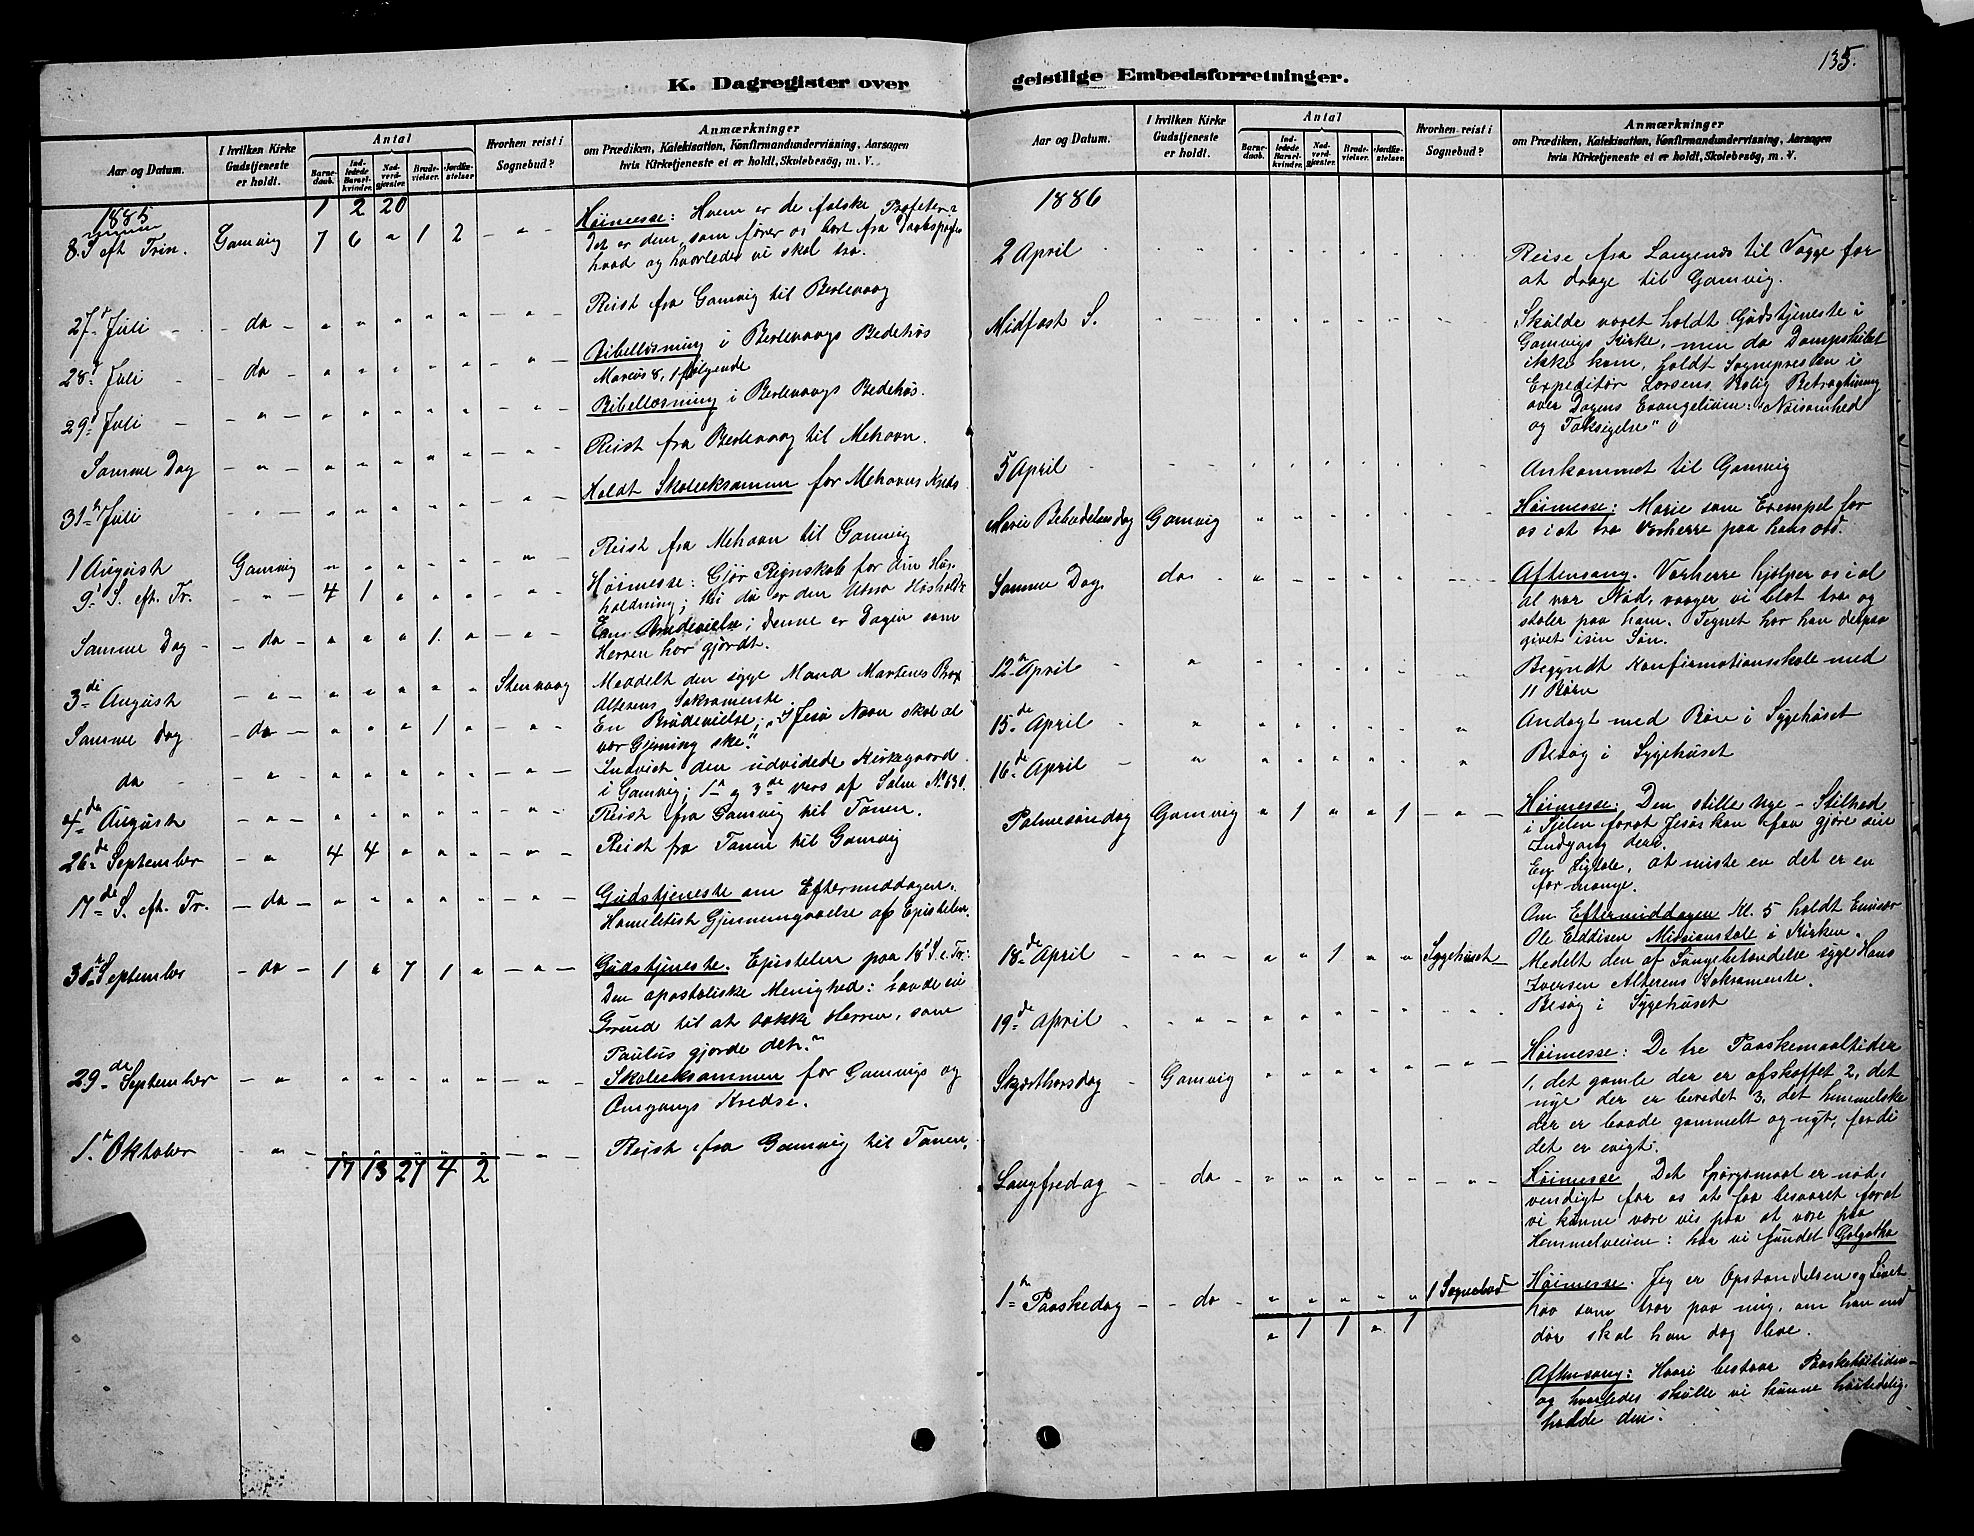 K. Dagregister over
Aar og Datum.
I hvilken Kirke Gudstjeneste er holdt.
Antal
Barnedaab.
Indledede Barselkvinder.
Nadverdgjæster.
Brudevielser.
Jordfæstelser
Hvorhen reist i Sognebud?
Anmærkninger
om Prædiken, Katekisation, Konfirmandundervisning, Aarsagen
hvis Kirketjeneste ei er holdt, Skolebesøg, m. V.
1885
1 2 20
8. S. eft. Trin. Gamvig 7 6 " 1 2 – " – Høimesse: Hvem er de falske Profeter?
Det er dem, som fører os bort fra
hvad og hvorledes vi skal tro.
27. Juli – do – Reist fra Gamvig til Berlevaag
28. Juli – do – Bibellæsning i Berlevaags Bedehus
Marcus 8, 1 følgende
29. Juli – " – Bibellæsning i Berlevaags Bedehus.
Samme Dag – " – Reist fra Berlevaag til Mehavn.
31te Juli – " – Holdt Skoleeksamen for Mehavns Kreds
1 August Gamvig Reist fra Mehavn til Gamvig
9. S. eft. Tr. – " – 4 1 Høimesse: Gjør Regnskab for din Hus-
holdning; thi du er den
Samme Dag – do – 1 Brudevielse; denne er Dagen som
Herren har gjordt.
3die August – " – Stenvaag Meddelt den syge Mand Martenes
Alterens Sakramente
Samme Dag – do – 1 En Brudevielse; "I Jesu Navn skal al
vor Gjerning ske."
do – " – Indviet den udvidede Kirkegaard
i Gamvig; 1te og 3de vers af Salme No 630.
4de August – " – Reist fra Gamvig til Tanen.
26de September – " 4 4 Reist fra Tanen til Gamvig
17de S. eft. Tr. – do – Gudstjeneste om Eftermiddagen.
Homiletisk Gjennemgaaelse af Epistelen.
30te September – do – 1 " 7 1 " – " – Gudstjeneste. Epistelen paa 18 S. e. Tr.:
Den apostoliske Menighed: havde vi
Grund til at takke Herren, som
Paulus gjorde det?"
29de September – " – Skoleeksammen for Gamvigs og
Omgangs Kredse.
1te Oktober – " – Reist fra Gamvig til Tanen.
17 13 27 4 2
geistlige Embedsforretninger.
135.
Aar og Datum.
I hvilken Kirke Gudstjeneste er holdt.
Antal
Barnedaab.
Indledede Barselkvinder.
Nadverdgjæster.
Brudevielser.
Jordfæstelser.
Hvorhen reist i Sognebud?
Anmærkninger
om Prædiken, Katekisation, Konfirmandundervisning, Aarsagen
hvis Kirketjeneste ei er holdt, Skolebesøg, m. V.
1886
2 April Reise fra Langenes til Vagge for
at drage til Gamvig.
Midfast S. Skulde været holdt Gudstjeneste i
Gamvigs Kirke, men da Dampskibet
ikke kom, holdt Sognepresten i
Expeditør Larsens Bolig Betragtning
over Dagens Evangelium: "Nøisomhed
og Taksigelse"
5 April Ankommet til Gamvig
Marie Bebudelsesdag Gamvig Høimesse: Marie som Exempel for
os i at tro Vorherre paa hans ord.
Samme Dag. do Aftensang. Vorherre hjelper os i al
al vor Nød, vaager vi blot tro og
stoler paa ham. Tegnet har han
givet i sin Søn.
12te April Begyndt Konfirmationsskole med
11 Børn
15de April Andagt med Bøn i Sygehuset
16de April Besøg i Sygehuset
Palmesøndag Gamvig " 1 " " 1 – " – Høimesse: Den stille Uge – Stilhed
i Sjelen forat Jesus kan faa gjøre sin
Indgang der.
En Ligtale, at miste en det er en
for mange.
Om Eftermiddagen Kl. 5 holdt Emissær
Ole Eddisen Missionstale i Kirken.
18de April – " – " " 1 " " Sygehuset Medelt den af Lungebetændelse syge Hans
Iversen Alterens Sakramente.
19de April – " – Besøg i Sygehuset
Skjærthorsdag – Gamvig Høimesse: De tre Paaskemaaltider
1, det gamle der er afskaffet 2, det
nye der er beredet 3, det himmelske
der er baade gammelt og nyt, fordi
det er evigt.
Langfredag – do – Høimesse Det Spørgsmaal er nød-
vendigt for os at faa besvaret forat
vi kunne være vis paa at være paa
Hemmelveien: har vi fundet Golgatha
1te Paaskedag – do – 1 Sognebud Høimesse. Jeg er Opstandelsen og Livet
hvo som tror paa mig, om han end
dør skal han dog leve.
" 1 1 " 1
Aftensang: Hvori bestaar Paaskehøitiden –
og hvorledes skulle vi kunne høitidelig-
holde den.